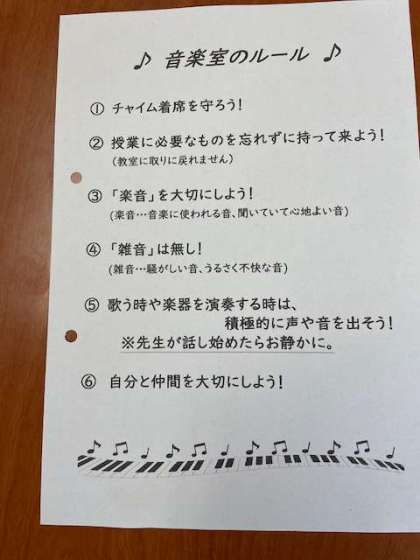 ♪ 音楽室のルール ♪
① チャイム着席を守ろう!
② 授業に必要なものを忘れずに持って来よう!
(教室に取りに戻れません)
③ 「楽音」を大切にしよう!
(楽音…音楽に使われる音、聞いていて心地よい音)
④ 「雑音」は無し!
(雑音…騒がしい音、うるさく不快な音)
⑤ 歌う時や楽器を演奏する時は、
積極的に声や音を出そう!
※先生が話し始めたらお静かに。
⑥ 自分と仲間を大切にしよう!